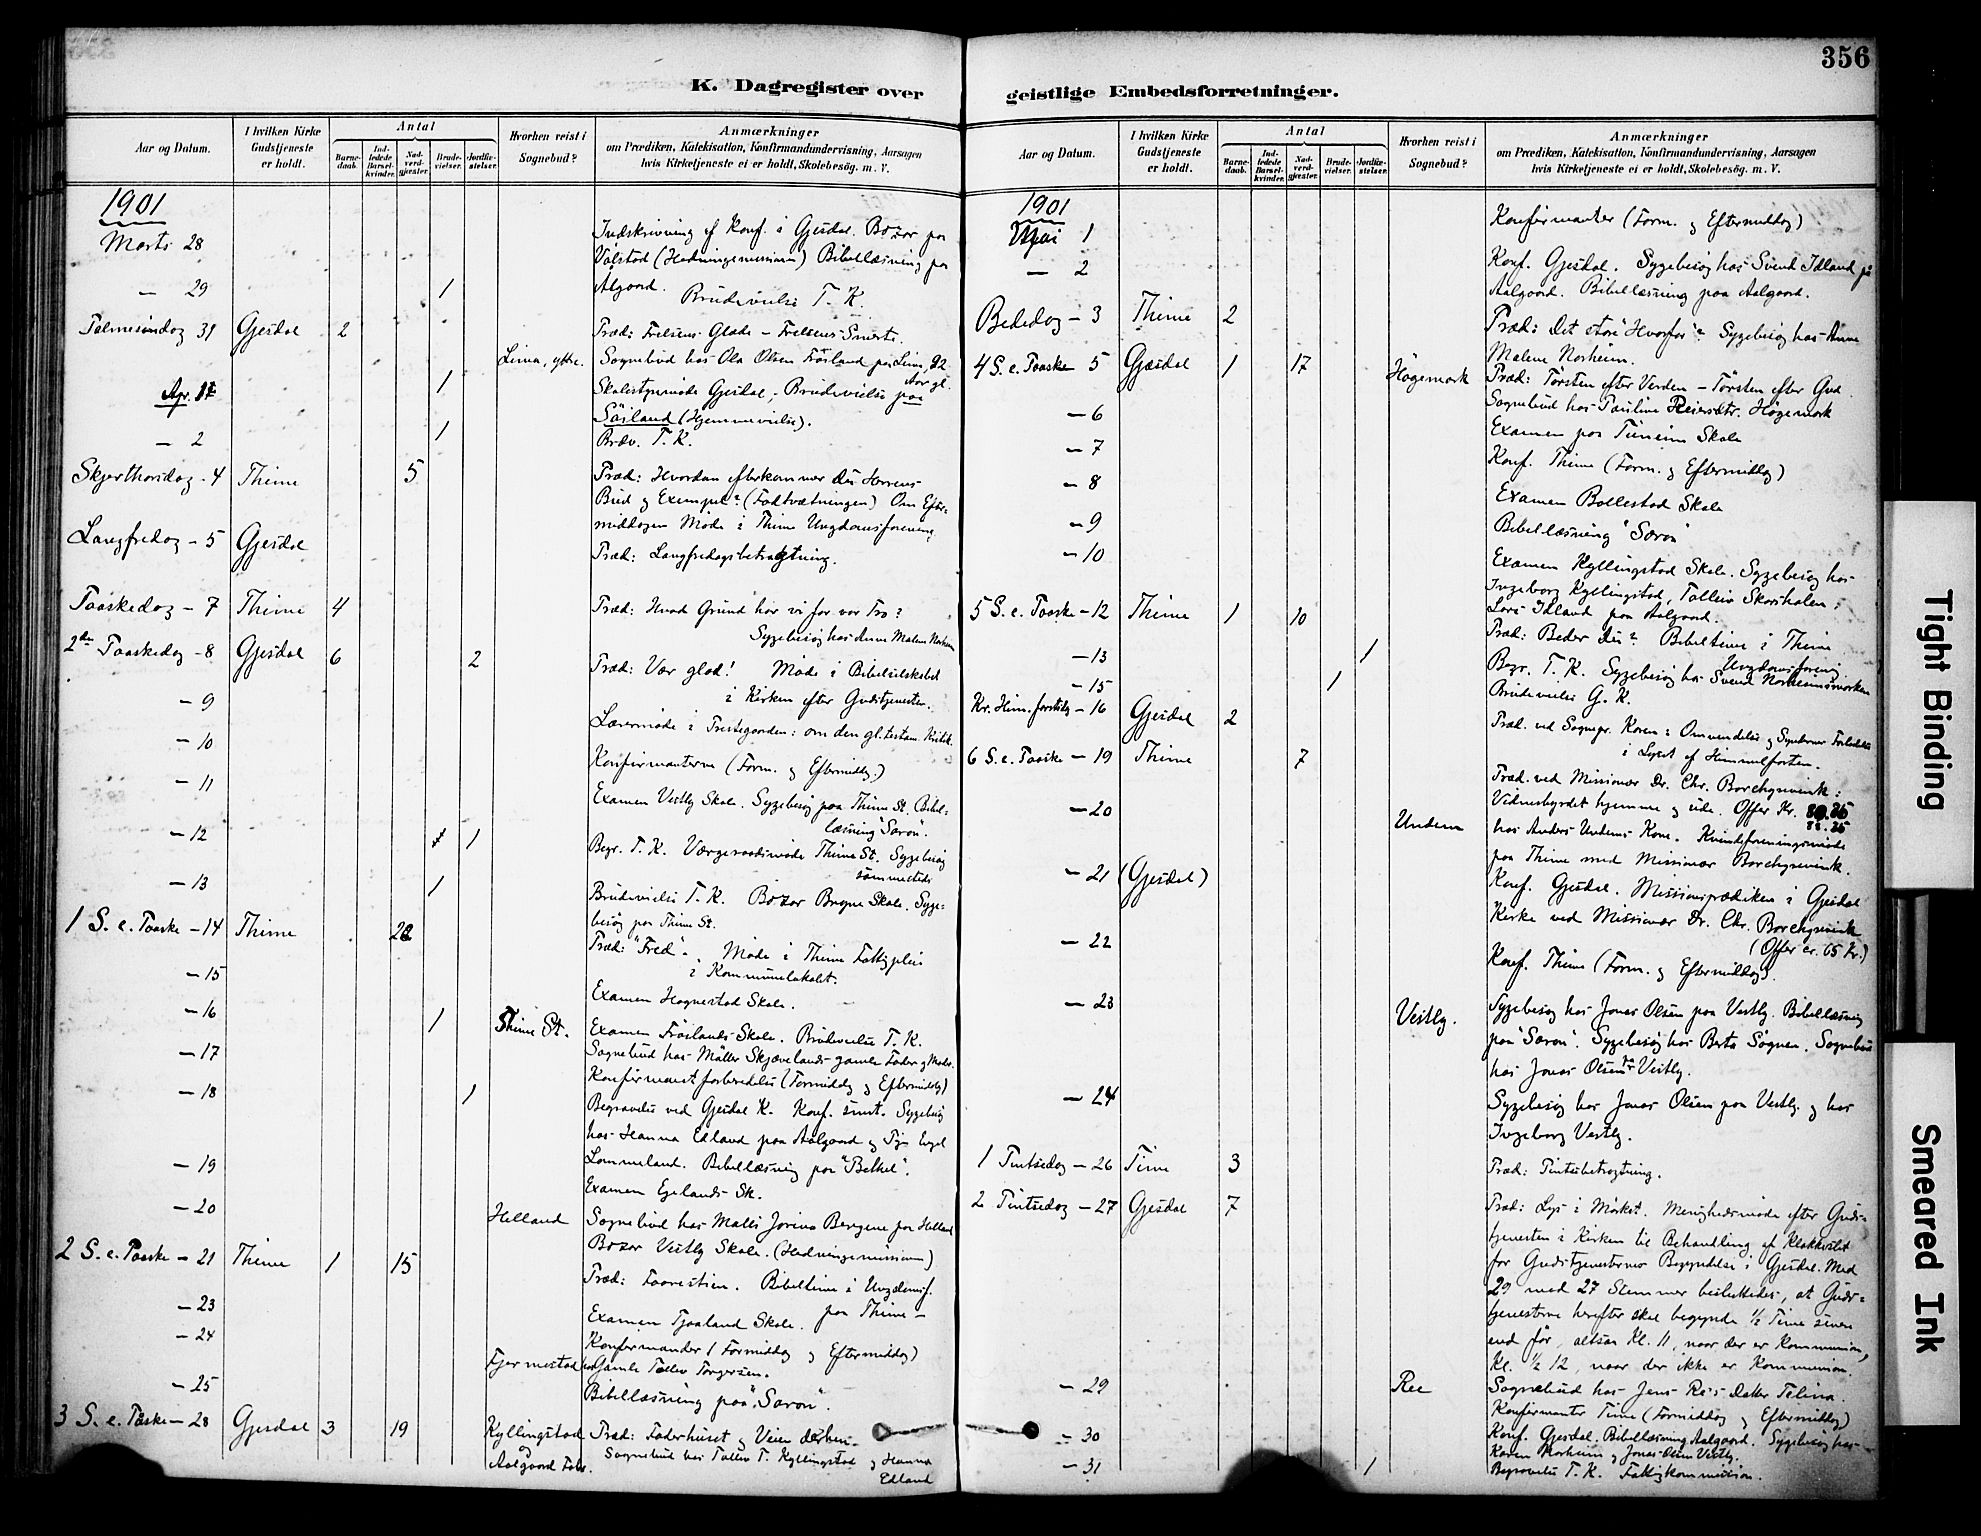 356
K. Dagregister over geistlige Embedsforretninger.
Aar og Datum.
I hvilken Kirke Gudstjeneste er holdt.
Antal
Barnedaab.
Indledede Barselkvinder.
Nadverdgjæster.
Brudevielser.
Jordfæstelser.
Hvorhen reist i Sognebud?
Anmærkninger
om Prædiken, Katekisation, Konfirmandundervisning, Aarsagen
hvis Kirketjeneste ei er holdt, Skolebesøg. m. V.
1901
Marts 28 Indskrivning af Konf. i Gjesdal. Bazar paa
Valstad (Hedningemission) Bibellæsning paa
Algaard.
— 29 1 Brudevielse T. K.
Palmesøndag 31 Gjesdal 2 Præd: Frelsens Glæde – Frelsens Smerte.
Lima, ytre. Sognebud hos Ola Olsen Fröiland paa Lima, 92
Aar gl.
Apr. 1 1 Skolestyremöde Gjesdal. Brudevielse paa
Söiland (Hjemmevielse).
— 2 1 Brdv. T. K.
Skjærthorsdag - 4 Thime 5 Præd: Hvordan efterkommer du Herrens
Bud og Exempel? (Fodtvætningen) Om Efter-
middagen Möde i Thime Ungdomsforening
Langfredag - 5 Gjesdal Præd: Langfredagsbetragtning.
Paaskedag - 7 Thime 4 Præd: Hvad Grund har vi for vor Tro?
Sygebesög hos Anne Malene Norheim
2den Paaskedag - 8 Gjesdal 6 2 Præd: Vær glad! Möde i Bibelselskabet
i Kirken efter Gudstjenesten.
- 9 Lærermöde i Prestegaarden: om den gl. testam. Kritik.
- 10 Konfirmanterne (Form. og Eftermiddg.)
- 11 Examen Vestly Skole. Sygebesög paa Thime St. Bibel-
læsning "Saron".
- 12 1 Begr. T. K. Værgeraadsmöde Thime St. Sygebesög
sammesteds
- 13 1 Brudevielse T. K. Bazar Bryne Skole. Syge-
besög paa Thime St.
1 S. e. Paaske - 14 Thime 22 Præd: "Fred". Möde i Thime Fattigpleie
i Kommunelokalet.
- 15 Examen Hognestad Skole.
- 16 1 Thime St. Examen Fröilands Skole. Brudevielse T. K.
Sognebud hos Möller Skjævelands gamle Fader og Moder.
- 17 Konfirmantforberedelse (Formiddg og Eftermiddg)
- 18 1 Begravelse ved Gjesdal K. Konf. smst. Sygebesög
hos Hanna Edland paa Aalgaard og
Lammeland. Bibellæsning paa "Bethel".
- 19 Examen Egelands Sk.
- 20 Helland Sognebud hos Malli Jorina Bergene paa Helland
Bazar Vestly Skole. (Hedningemission)
2 S. e. Paaske - 21 Thime 1 15 Præd: Faarestien. Bibeltime i Ungdomsf.
paa Thime -
- 23 Examen Tjaaland Skole.
- 24 Konfirmander (Formiddag og Eftermiddag)
Fjermestad hos Gamle Tollev Torgersen.
- 25 Bibellæsning paa "Saron".
3 S. e. Paaske - 28 Gjesdal 3 19 Kyllingstad Præd: Faderhuset og Veien derhen.
og Aalgaard Fabr. Sognebud hos Tollev T. Kyllingstad og Hanna
Edland
1901
Mai 1 Konfirmanter (Form. og Eftermiddag)
— 2 Konf. Gjesdal. Sygebesög hos Svend Idland på
Aalgaard. Bibellæsning paa Aalgaard.
Bededag - 3 Thime 2 Præd: Det store "Hvorfor"? Sygebesög hos Anne
Malene Norheim.
4 S. e. Paaske 5 Gjesdal 1 17 Högemork Præd: Törsten efter Verden – Törsten efter Gud
Sognebud hos Pauline Reiersdtr. Högemork
- 6 Examen paa Tunheim Skole
- 7 Konf. Thime (Form. og Eftermiddg)
- 8 Examen Bollestad Skole
- 9 Bibellæsning "Saron"
- 10 Examen Kyllingstad Skole. Sygebesög hos
Ingeborg Kyllingstad, Tolleiv Skurhalen,
Lars Idland paa Aalgaard.
5 S. e. Paaske - 12 Thime 1 10 Præd: Beder du? Bibeltime i Thime
Ungdomsforening
- 13 1 Begr. T. K. Sygebesög hos Svend Norheimsmarken
- 15 1 Brudevielse G. K.
Kr. Him. fartsdg - 16 Gjesdal 2 Præd. ved Sognepr. Koren: Omvendelse og Syndernes Forladelse
i Lyset af Himmelfarten.
6 S. e. Paaske - 19 Thime 7 Præd. ved Missionær Dr. Chr. Borchgrevink:
Vidnesbyrdet hjemme og ude. Offer Kr.
88.25
- 20 Undem hos Anders Undems Kone. Kvindeforeningsmöde
paa Thime med Missionær Borchgrevink.
- 21 (Gjesdal) Konf. Gjesdal. Missionsprædiken i Gjesdal
Kirke ved Missionær Dr. Chr. Borchgrevink
(Offer cr. 65 Kr.)
- 22 Konf. Thime (Form. og Eftermiddag).
- 23 Vestly. Sygebesög hos Jonas Olsen paa Vestly. Bibellæsning
paa "Saron". Sygebesög hos Berta Sognen. Sognebud
hos Jonas Olsen Vestly.
- 24 Sygebesög hos Jonas Olsen paa Vestly og hos
Ingeborg Vestly.
1 Pintsedag - 26 Time 3 Præd: Pintsebetragtning.
2 Pintsedag - 27 Gjesdal 7 Præd: Lys i Mörket. Menighedsmöde efter Guds-
tjenesten i Kirken til Behandling af Klokkeslet
for Gudstjenesternes Begyndelse i Gjesdal. Med
29 mod 27 Stemmer besluttedes, at Guds-
tjenesterne herefter skal begynde 1/2 Time senere
end för, altsaa Kl. 11, naar der er Kommunion,
Kl. 1/2 12, naar der ikke er Kommunion.
- 29 Ree Sognebud hos Jens Re's Datter Telina.
Konfirmanter Time (Formiddag og Eftermiddag)
- 30 Konf. Gjesdal. Bibellæsning Aalgaard. Sygebesög hos
Karen Norheim og Jonas Olsen Vestly.
- 31 1 Begravelse T. K. Fattigkommission.
Tight Binding
Smeared Ink